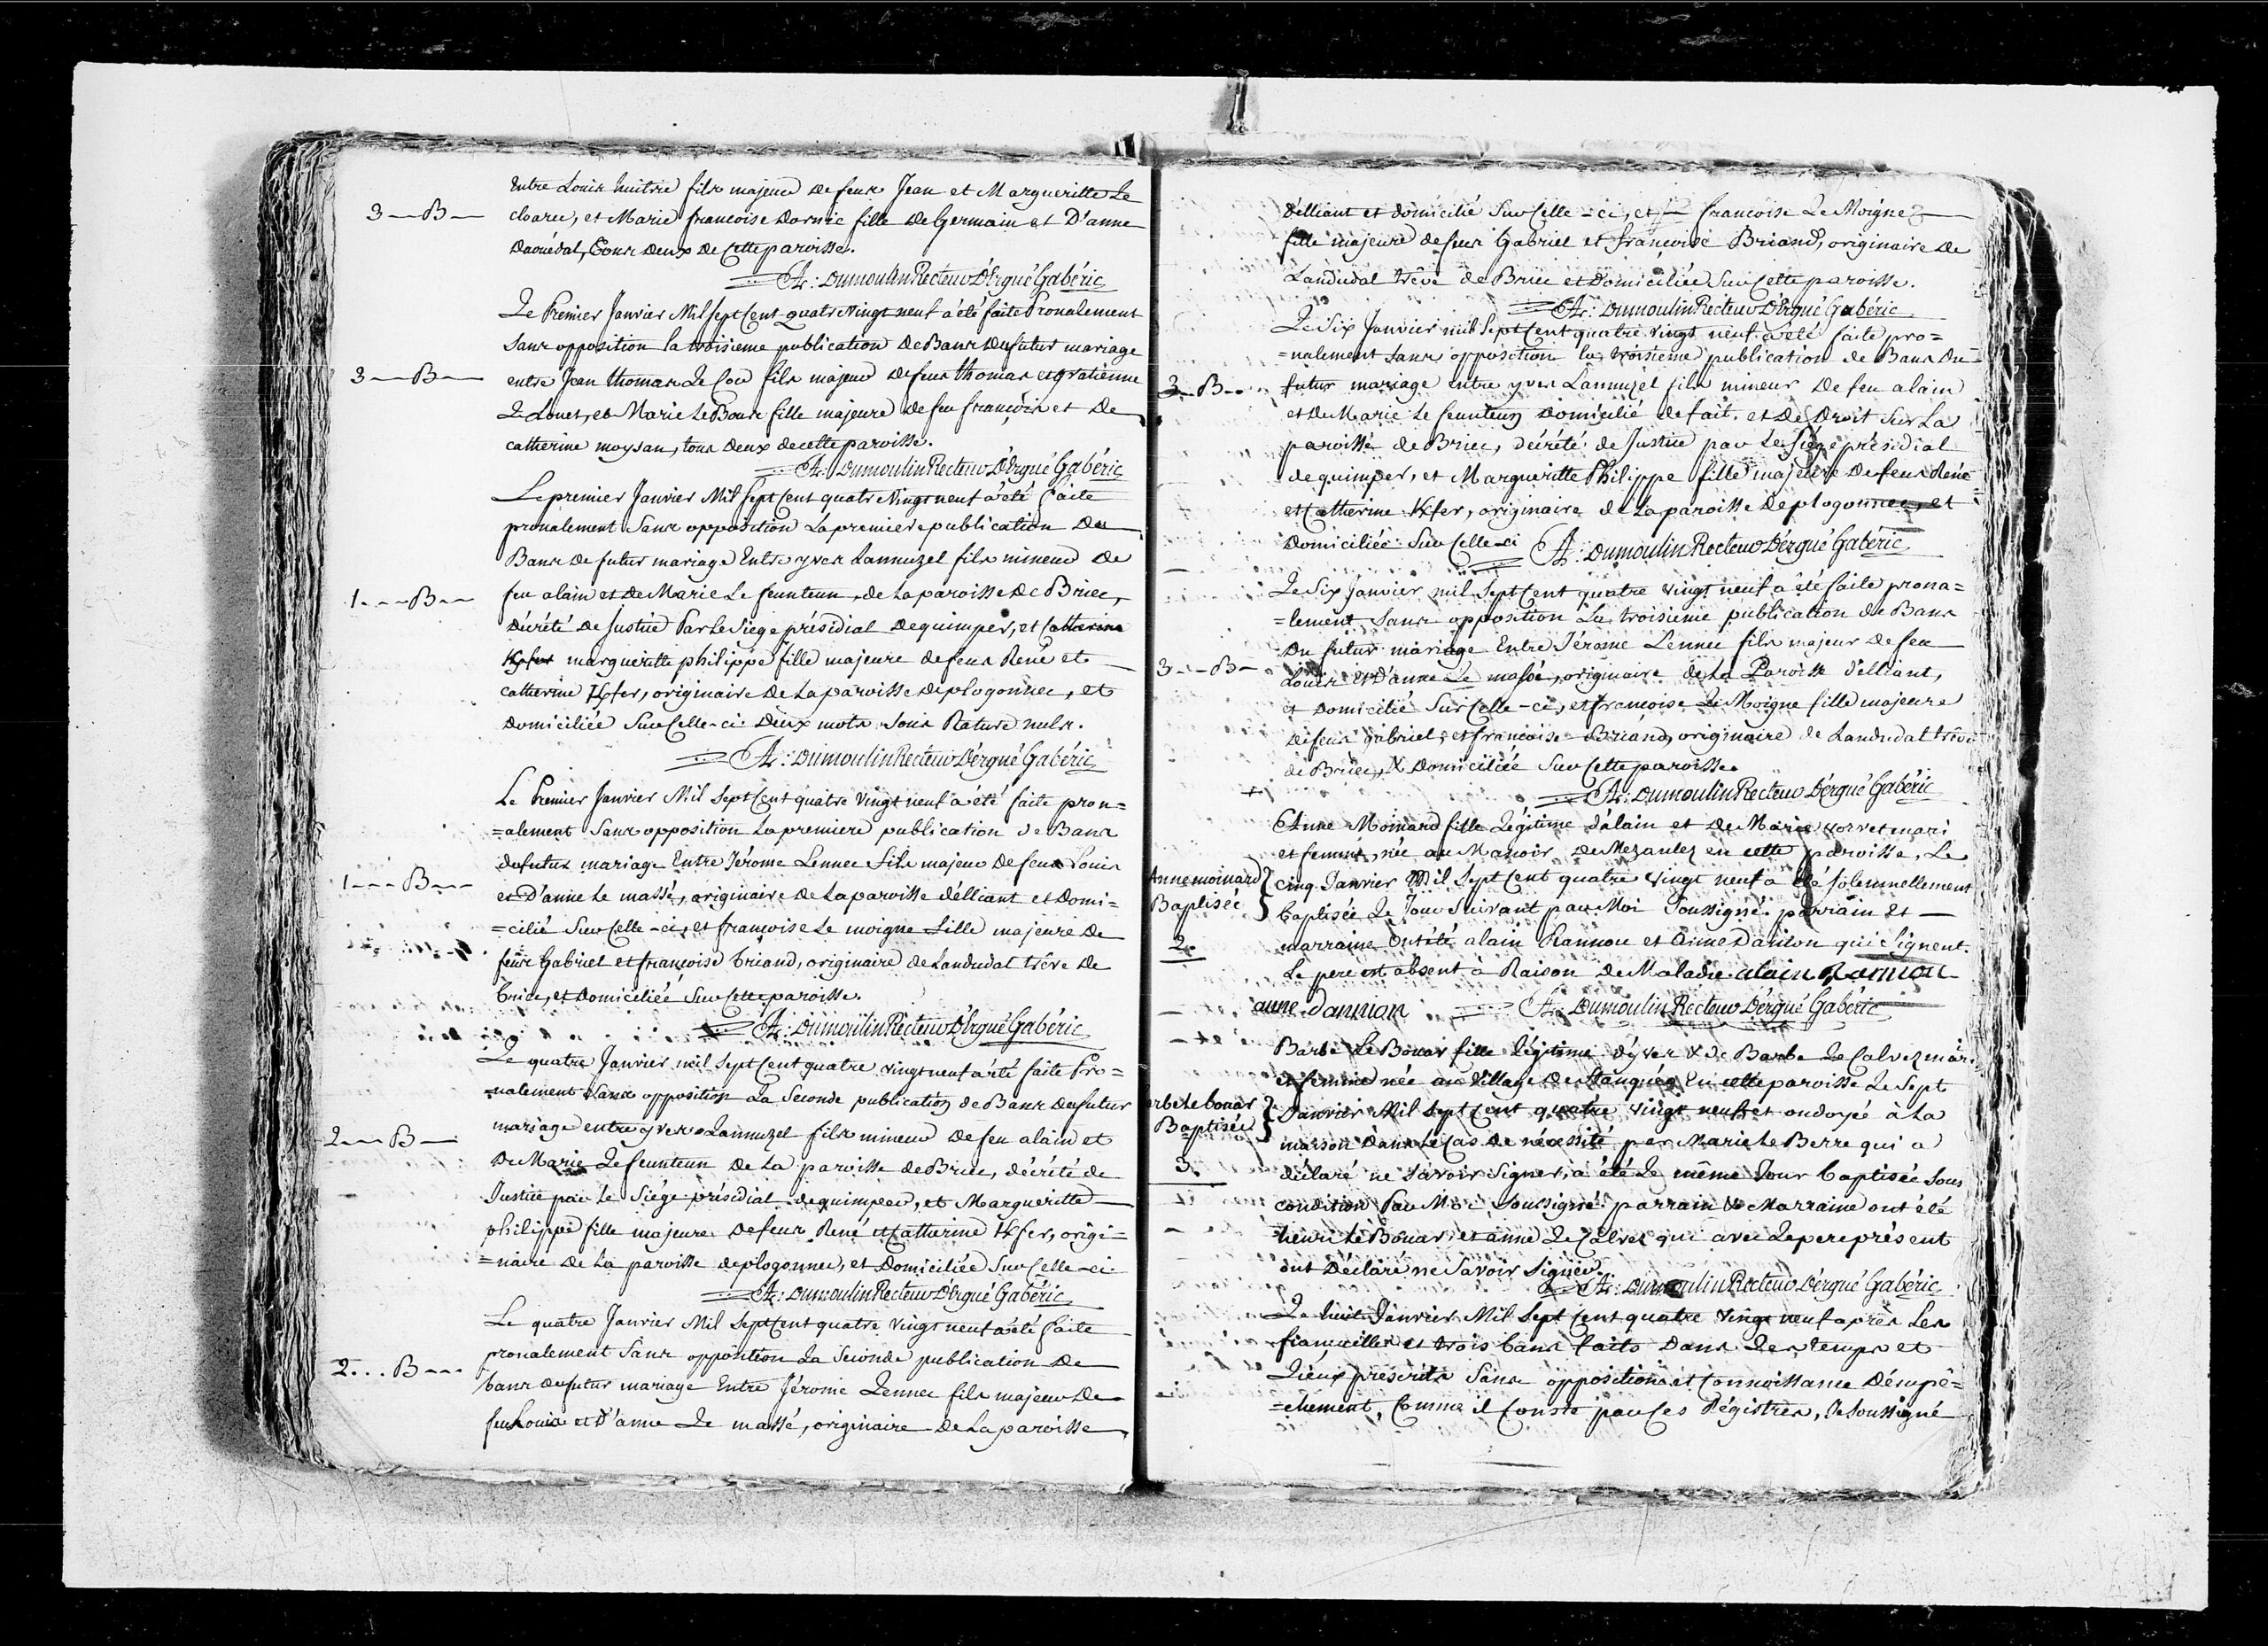 Entre Louis huitric fils majeur de feus Jean et Margueritte Le
3 — B — cloarec, et Marie francoise Dornic fille de Germain et D'anne
Daouédal, tous deux de cette paroisse.
A: Dumoulin Recteur D'érgué Gabéric
Le Premier Janvier Mil sept cent quatre vingt neuf a été faite Pronalement
sans opposition la troisieme publication de Bans du futur mariage
3 — B — entre Jean thomas Le Cou fils majeur de feus thomas et gratienne
Le Louet, et Marie Le Bour fille majeure de feu françois et de
catherine moysan, tous deux de cette paroisse.
A: Dumoulin Recteur D'érgué Gabéric
Le premier Janvier Mil sept cent quatre vingt neuf a été faite
pronalement sans opposition La premiere publication des
Bans de futur mariage Entre yves Lannuzel fils mineur de
1 - - - B - - feu alain et de Marie Le feunteun, de la paroisse de Briec,
décrété de Justice Par Le Siege présidial de quimper, et Catherine
Kfer margueritte philippe fille majeure de feus René et
catherine Kfer, originaire de la paroisse de plogonnec, et
Domiciliée Sur Celle-ci deux mots sous Rature nuls.
A: Dumoulin Recteur D'érgué Gabéric
Le Premier Janvier Mil Sept Cent quatre vingt neuf a été faite pron=
=alement Sans opposition La premiere publication de Bans
du futur mariage Entre Jérome Lennec fils majeur de feus Louis
1 - - - B - - - et D'anne Le massé, originaire de la paroisse d'élliant et domi=
=cilié Sur Celle-ci, et francoise Le moigne fille majeure de
feus Gabriel et francoise briand, originaire de Landudal trêve de
briec, et Domiciliée Sur Cette paroisse.
A: Dumoulin Recteur D'érgué Gabéric
Le quatre Janvier mil sept Cent quatre vingt neuf a été faite Pro=
=nalement Sans opposition La Seconde publication de Bans du futur
mariage entre yves Lannuzel fils mineur de feu alain et
2 - - - B — De Marie Le feunteun de la paroisse de Briec, décrété de
Justice par le Siége présidial de quimper, et Margueritte
philippe fille majeure de feus René et Catherine Kfer, origi=
=naire de la paroisse de plogonnec, et Domiciliée Sur Celle-ci
A: Dumoulin Recteur D'érgué Gabéric
Le quatre Janvier Mil Sept Cent quatre vingt neuf a été faite
pronalement Sans opposition La Seconde publication de
2 . . . B - - - bans du futur mariage Entre Jérome Lennec fils majeur de
feu Louis et D'anne Le massé, originaire de La paroisse
d'élliant et domicilié Sur Celle-ci, et francoise Le Moigne
fille majeure de feus Gabriel et françoise Briand, originaire de
Landudal trêve de Briec et Domiciliée Sur Cette paroisse.
A: Dumoulin Recteur D'érgué Gabéric
Le Six Janvier mil Sept Cent quatre vingt neuf a été faite pro=
=nalement sans opposition la troisieme publication de Bans du
3 - B - - futur mariage entre yves Lannuzel fils mineur de feu alain
et de Marie Le feunteun domicilié de fait et de Droit Sur La
paroisse de Briec, décrété de Justice par Le Siége présidial
de quimper, et Margueritte Philippe fille majeure de feus René
et Catherine Kfer, originaire de la paroisse de plogonnec, et
Domiciliée Sur Celle-ci A: Dumoulin Recteur D'érgué Gabéric
Le Six Janvier mil Sept Cent quatre vingt neuf a été faite prona=
=lement Sans opposition La troisieme publication de Bans
Du futur mariage Entre Jérome Lennec fils majeur de feu
3 - - B - Louis et D'anne Le massé, originaire de la Paroisse d'élliant,
et Domicilié Sur Celle-ci, et francoise Le Moigne fille majeure
de feus gabriel, et francoise Briand, originaire de Landudal trêve
de Briec, & Domiciliée Sur Cette paroisse.
A: Dumoulin Recteur D'érgué Gabéric
Anne Moinard fille Légitime d'alain et de Marie corvet mari
et femme, née au Manoir de Mezanlez en cette paroisse, Le
Anne moinard cinq Janvier Mil Sept Cent quatre vingt neuf a été solennellement
Baptisée baptisée Le Jour Suivant par Moi Soussigné. parrain et
2. marraine Ont été alain Rannou et anne Danion qui Signent.
Le pere est absent à Raison de Maladie. alain Rannou
anne Dannion A: Dumoulin Recteur D'érgué Gabéric
Barbe Le Bouar fille Légitime d'yves & de Barbe Le Calvez mari
et femme née au Village de Stanquéo En cette paroisse Le Sept
rbe Le bouar Janvier Mil Sept Cent quatre vingt neuf et ondoyée à la
Baptisée maison dans Le Cas de nécessité par Marie Le Berre qui a
3. déclaré ne Savoir Signer, a été Le même Jour baptisée Sous
condition Par Moi Soussigné. parrain & Marraine ont été
henri Le Bouar, et anne Le Calvez qui avec Le pere présent
ont Déclaré ne Savoir Signer.
A: Dumoulin Recteur D'érgué Gabéric
Le huit Janvier Mil Sept Cent quatre vingt neuf après Les
fiancailles et trois bans faits dans Les temps et
Lieux prescrits Sans opposition ni Connoissance d'empê=
=chement, Comme il Conste par Ces Régistres, Je Soussigné